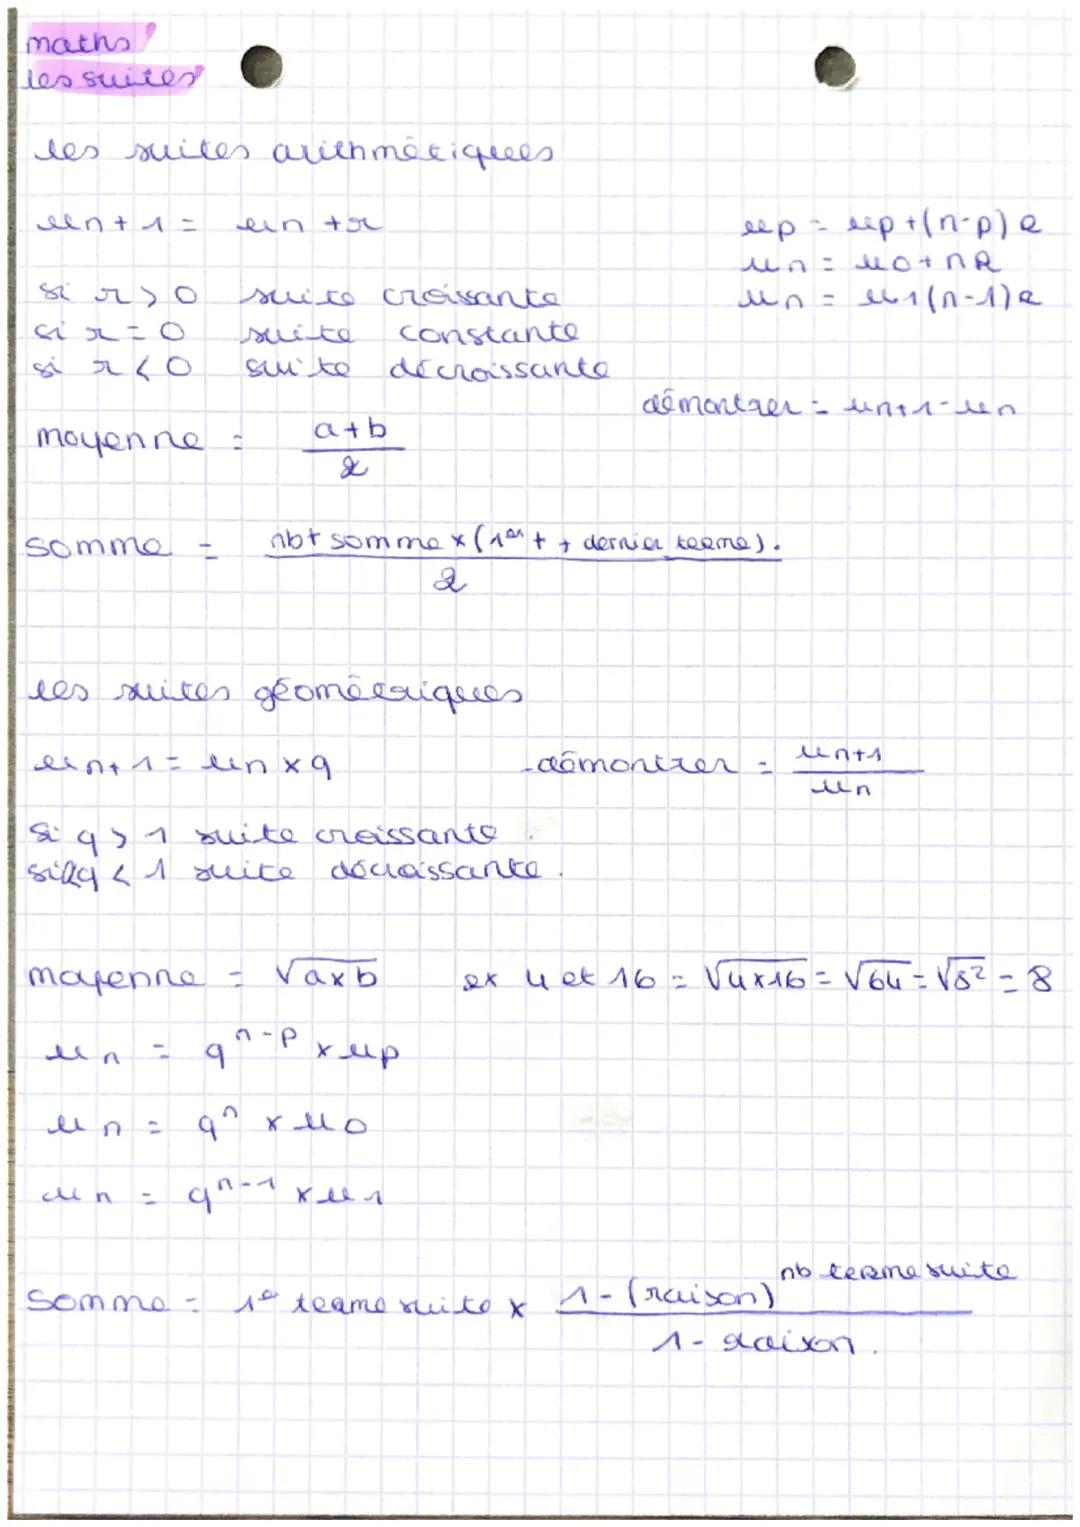 maths
les suites
les suites arithmétiques
un+1 = un +r
up = up+(n-p)R
un = u0+nR
si r>0 suite croissante
un = u1(n-1)R
si r=0 suite constante
si r<0 suite décroissante
démontrer = un+1-un
moyenne = a+b
2
somme = nbt somme x (1er t + dernier terme).
2
les suites géométriques
un+1 = un x q
-démontrer = un+1
un
si q > 1 suite croissante.
si q < 1 suite décroissante.
moyenne = √axb ex 4 et 16 = √4x16 = √64 = √8² = 8
un = q^n-p x up
un = q^n x u0
un = q^n-1 x u1
nb terme suite
somme = 1e terme suite x 1-(raison)
1- raison.